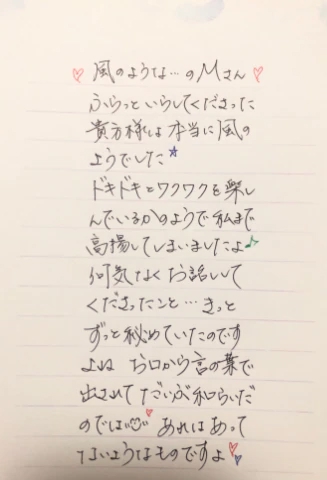 ♡ 風のような…のMさん ♡
ふらっといらしてくださった
貴方様は本当に風の
ようでした☆
ドキドキとワクワクを楽し
んでいるかのようで私まで
高揚してしまいましたよ♪
何気なくお話しして
くださったこと…きっと
ずっと秘めていたのです
よね お口から言の葉で
出されて だいぶ和らいだ
のでは♡ あれはあって
ないようなものですよ♡♡